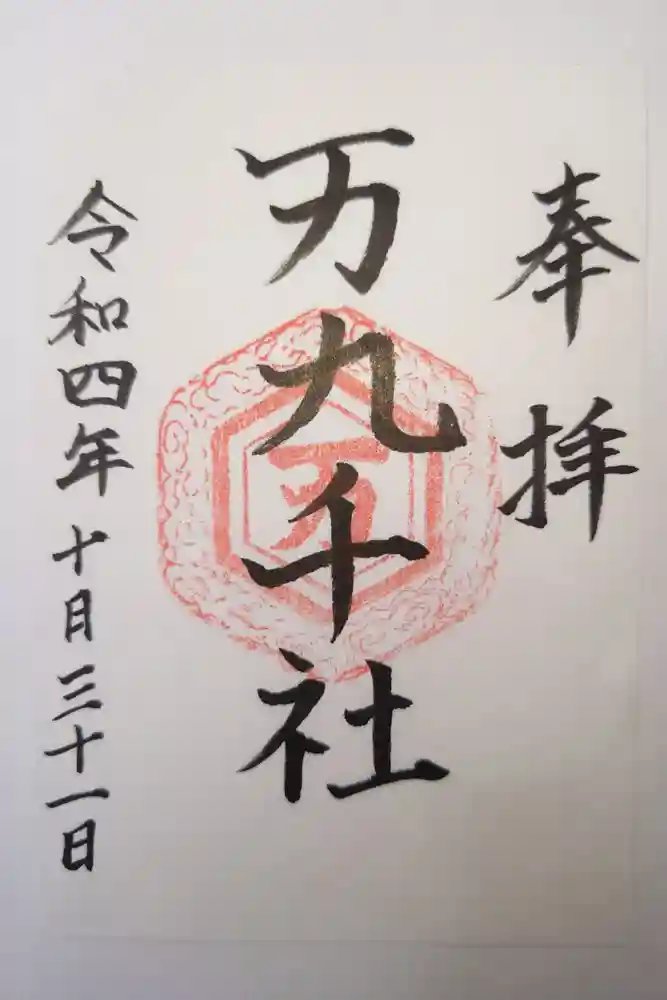 奉拝
万九千社
万
令和四年十月三十一日